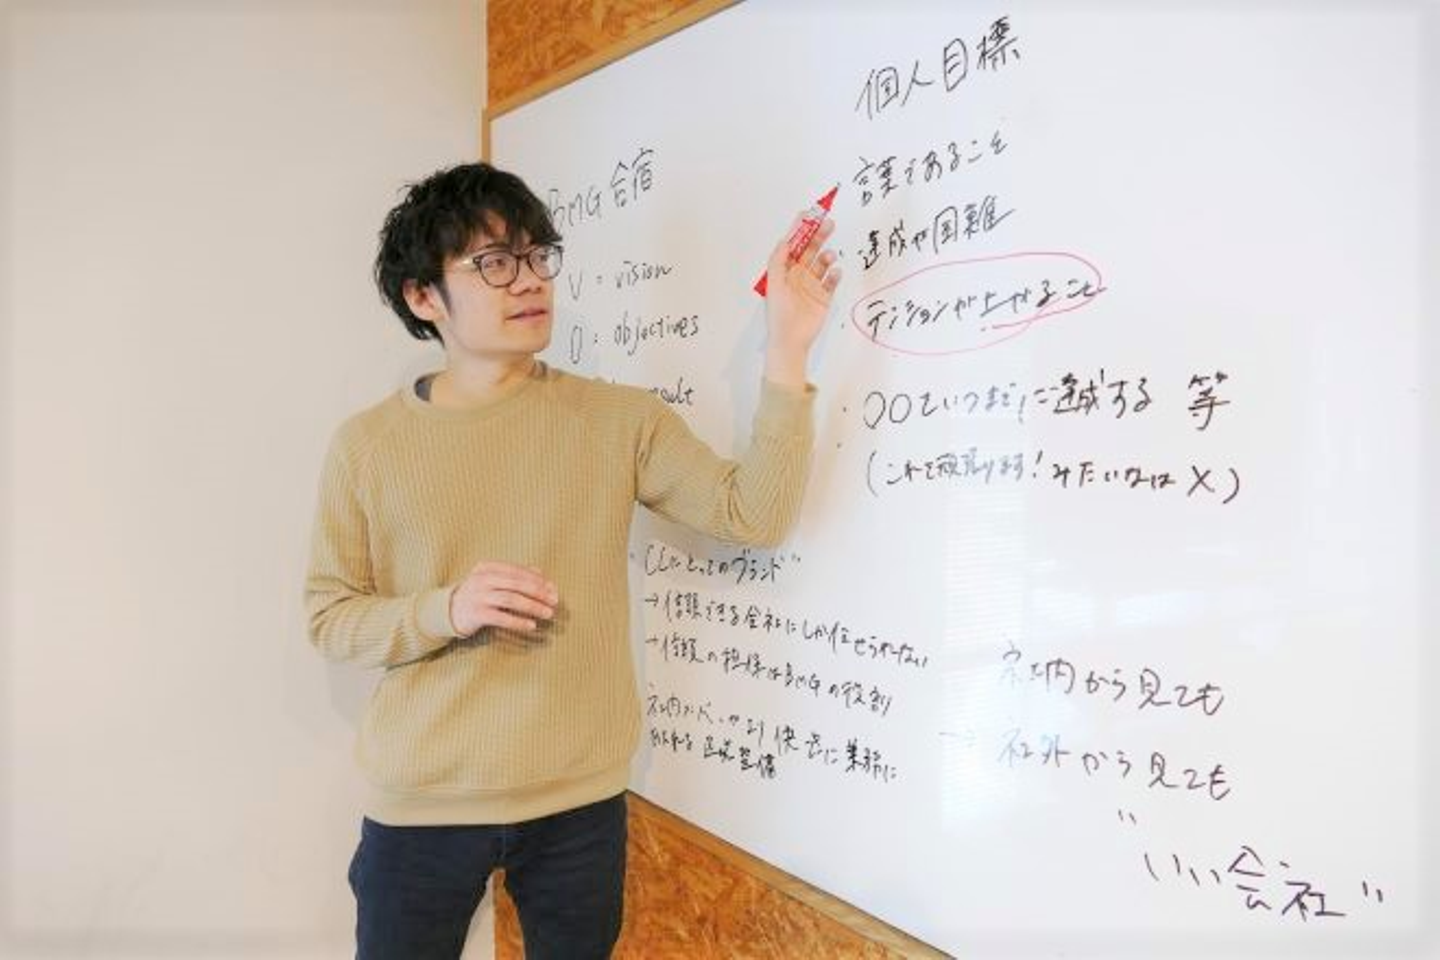 BMG合宿
V : vision
O : objectives
result
個人目標
・言葉であること
・達成や困難
・テンションが上がること
・〇〇をいつまでに達成する 等
(これを頑張ります！みたいなのは×)
CLにとってのブランド"
→信頼できる会社にしか任せられない
→信頼の担保はBMGの役割
社内メンバーがより快適に業務に
環境整備
社内から見ても
→社外から見ても
"いい会社"